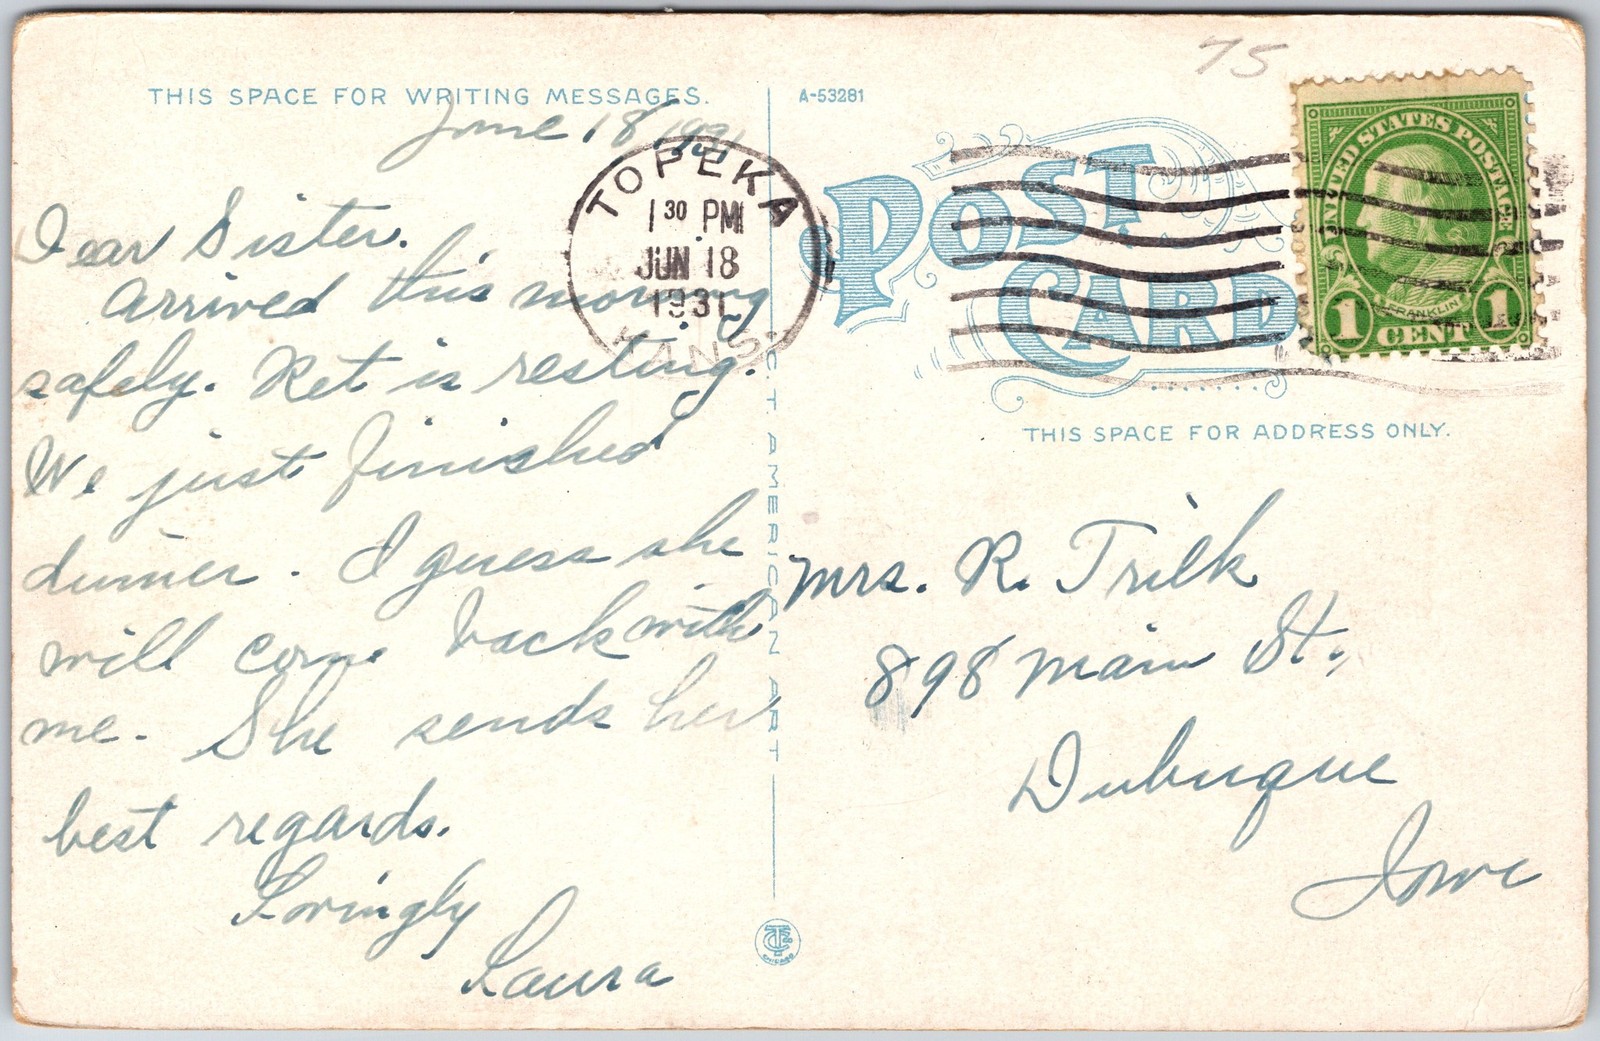 75
THIS SPACE FOR WRITING MESSAGES.
A-53281
June 18, 1931
TOPEKA
1 30 PM
JUN 18
1931
KANS.
POST
CARD
UNITED STATES POSTAGE
FRANKLIN
1 CENT 1
THIS SPACE FOR ADDRESS ONLY.
Dear Sister.
Arrived this morning
safely. Ret is resting.
We just finished
dinner. I guess she
will come back with
me. She sends her
best regards.
Lovingly
Laura
C. T. AMERICAN ART
Mrs. R. Trilk
898 Main St.,
Dubuque
Iowa
CHICAGO